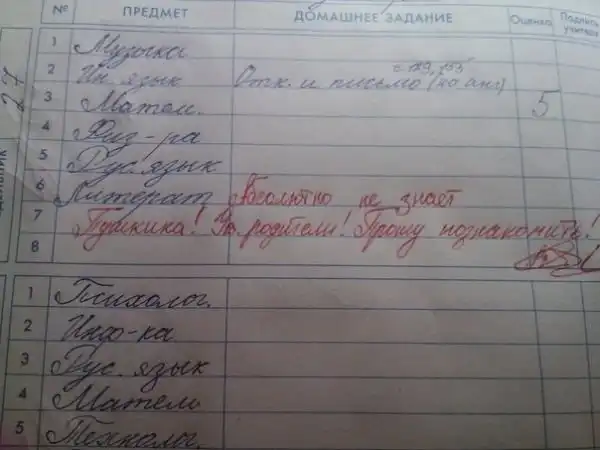 № ПРЕДМЕТ ДОМАШНЕЕ ЗАДАНИЕ Оценка Подпись учителя
27
1 Музыка
с 129, 133
2 Ин. язык Отк. и письмо (по анг)
3 Матем. 5
4 Физ-ра
5 Рус. язык
6 Литерат Абсолютно не знает
7 Пушкина! Ув. родители! Прошу познакомить!
8
1 Психолог.
2 Инф-ка
3 Рус. язык
4 Матем
5 Технолог.